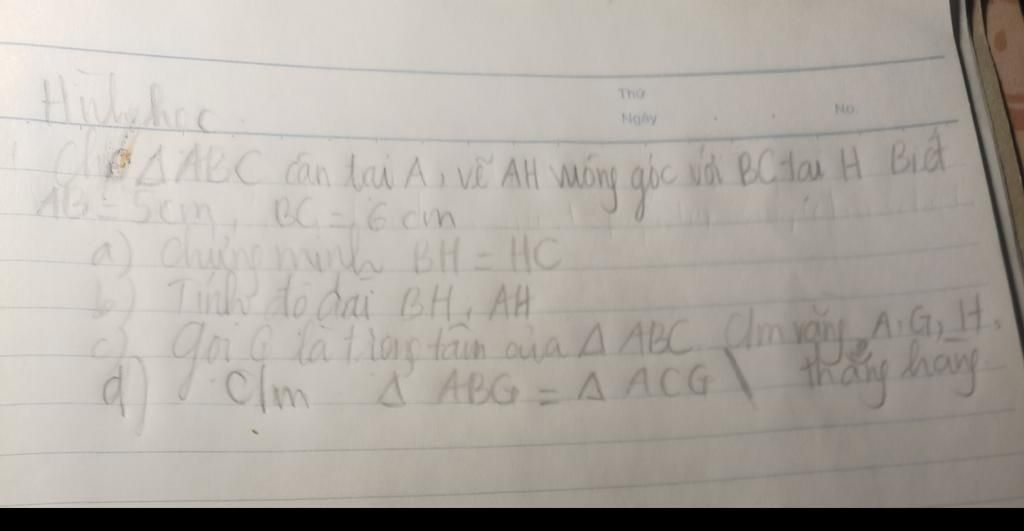 Hình học
Thứ
Ngày
No.
1 Cho Δ ABC cân tại A, vẽ AH vuông góc với BC tại H Biết
AB = 5cm, BC = 6 cm
a) Chứng minh BH = HC
b) Tính độ dài BH, AH
c) gọi G là trọng tâm của Δ ABC. C/m rằng A, G, H.
thẳng hàng
d) C/m Δ ABG = Δ ACG